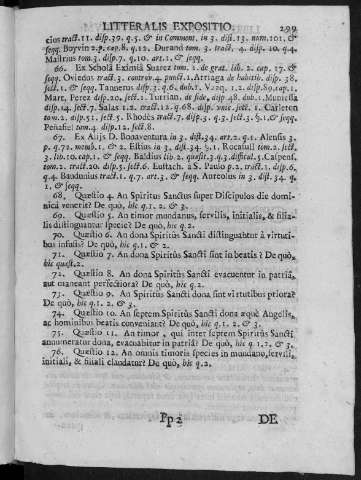 LITTERALIS EXPOSITIO. 299
cius tract. 11. disp. 39. q. 5. & in Comment. in 3. dist. 13. num. 101. &
seqq. Boyvin 2. p. cap. 8. q. 12. Durand tom. 3. tract. 4. disp. 10. q. 4.
Mastrius tom. 3. disp. 7. q. 10. art. 1. & seqq.
66. Ex Scholâ Eximiâ Suarez tom. 1. de grat. lib. 2. cap. 17. &
seqq. Oviedus tract. 3. controv. 4. punct. 1. Arriaga de habitib. disp. 38.
sect. 1. & seqq. Tannerus disp. 3. q. 6. dub. 1. Vazq. 1. 2. disp. 89. cap. 1.
Mart. Perez disp. 20. sect. 1. Turrian. de fide, disp. 48. dub. 1. Muniessa
disp. 14. sect. 7. Salas 1. 2. tract. 12. q. 68. disp. unic. sect. 1. Carleton
tom. 2. disp. 51. sect. 5. Rhodès tract. 7. disp. 3. q. 3. sect. 3. §. 1. & seqq.
Peñafiel tom. 4. disp. 12. sect. 8.
67. Ex Alijs D. Bonaventura in 3. dist. 34. art. 2. q. 1. Alensis 3.
p. q. 72. memb. 1. & 2. Estius in 3. dist. 34. §. 1. Rocafull tom. 2. sect.
3. lib. 10. cap. 1. & seqq. Baldius lib. 2. quæst. 3. q. 3. difficul. 5. Caspens.
tom. 2. tract. 20. disp. 5. sect. 6. Eustach. à S. Paulo p. 2. tract. 2. disp. 6.
q. 4. Baudunius tract. 1. q. 7. art. 3. & seqq. Aureolus in 3. dist. 34. q.
1. & seqq.
68. Quæstio 4. An Spiritus Sanctus super Discipulos die domi-
nicâ venerit? De quò, hic q. 1. 2. & 3.
69. Quæstio 5. An timor mundanus, servilis, initialis, & filia-
lis distinguantur specie? De quò, hic q. 2.
70. Quæstio 6. An dona Spiritûs Sancti distinguantur à virtuti-
bus infusis? De quò, hic q. 1. & 2.
71. Quæstio 7. An dona Spiritûs Sancti sint in beatis? De quò,
hic quæst. 2.
72. Quæstio 8. An dona Spiritûs Sancti evacuentur in patriâ,
aut maneant perfectiora? De quò, hic q. 2.
73. Quæstio 9. An Spiritûs Sancti dona sint virtutibus priora?
De quò, hic q. 2. & 3.
74. Quæstio 10. An septem Spiritûs Sancti dona æquè Angelis,
ac hominibus beatis conveniant? De quò, hic q. 2. & 3.
75. Quæstio 11. An timor, qui inter septem Spiritûs Sancti
annumeratur dona, evacuabitur in patriâ? De quò, hic q. 1. 2. & 3.
76. Quæstio 12. An omnis timoris species in mundano, servili,
initiali, & filiali claudatur? De quò, hic q. 2.
Pp 2 DE